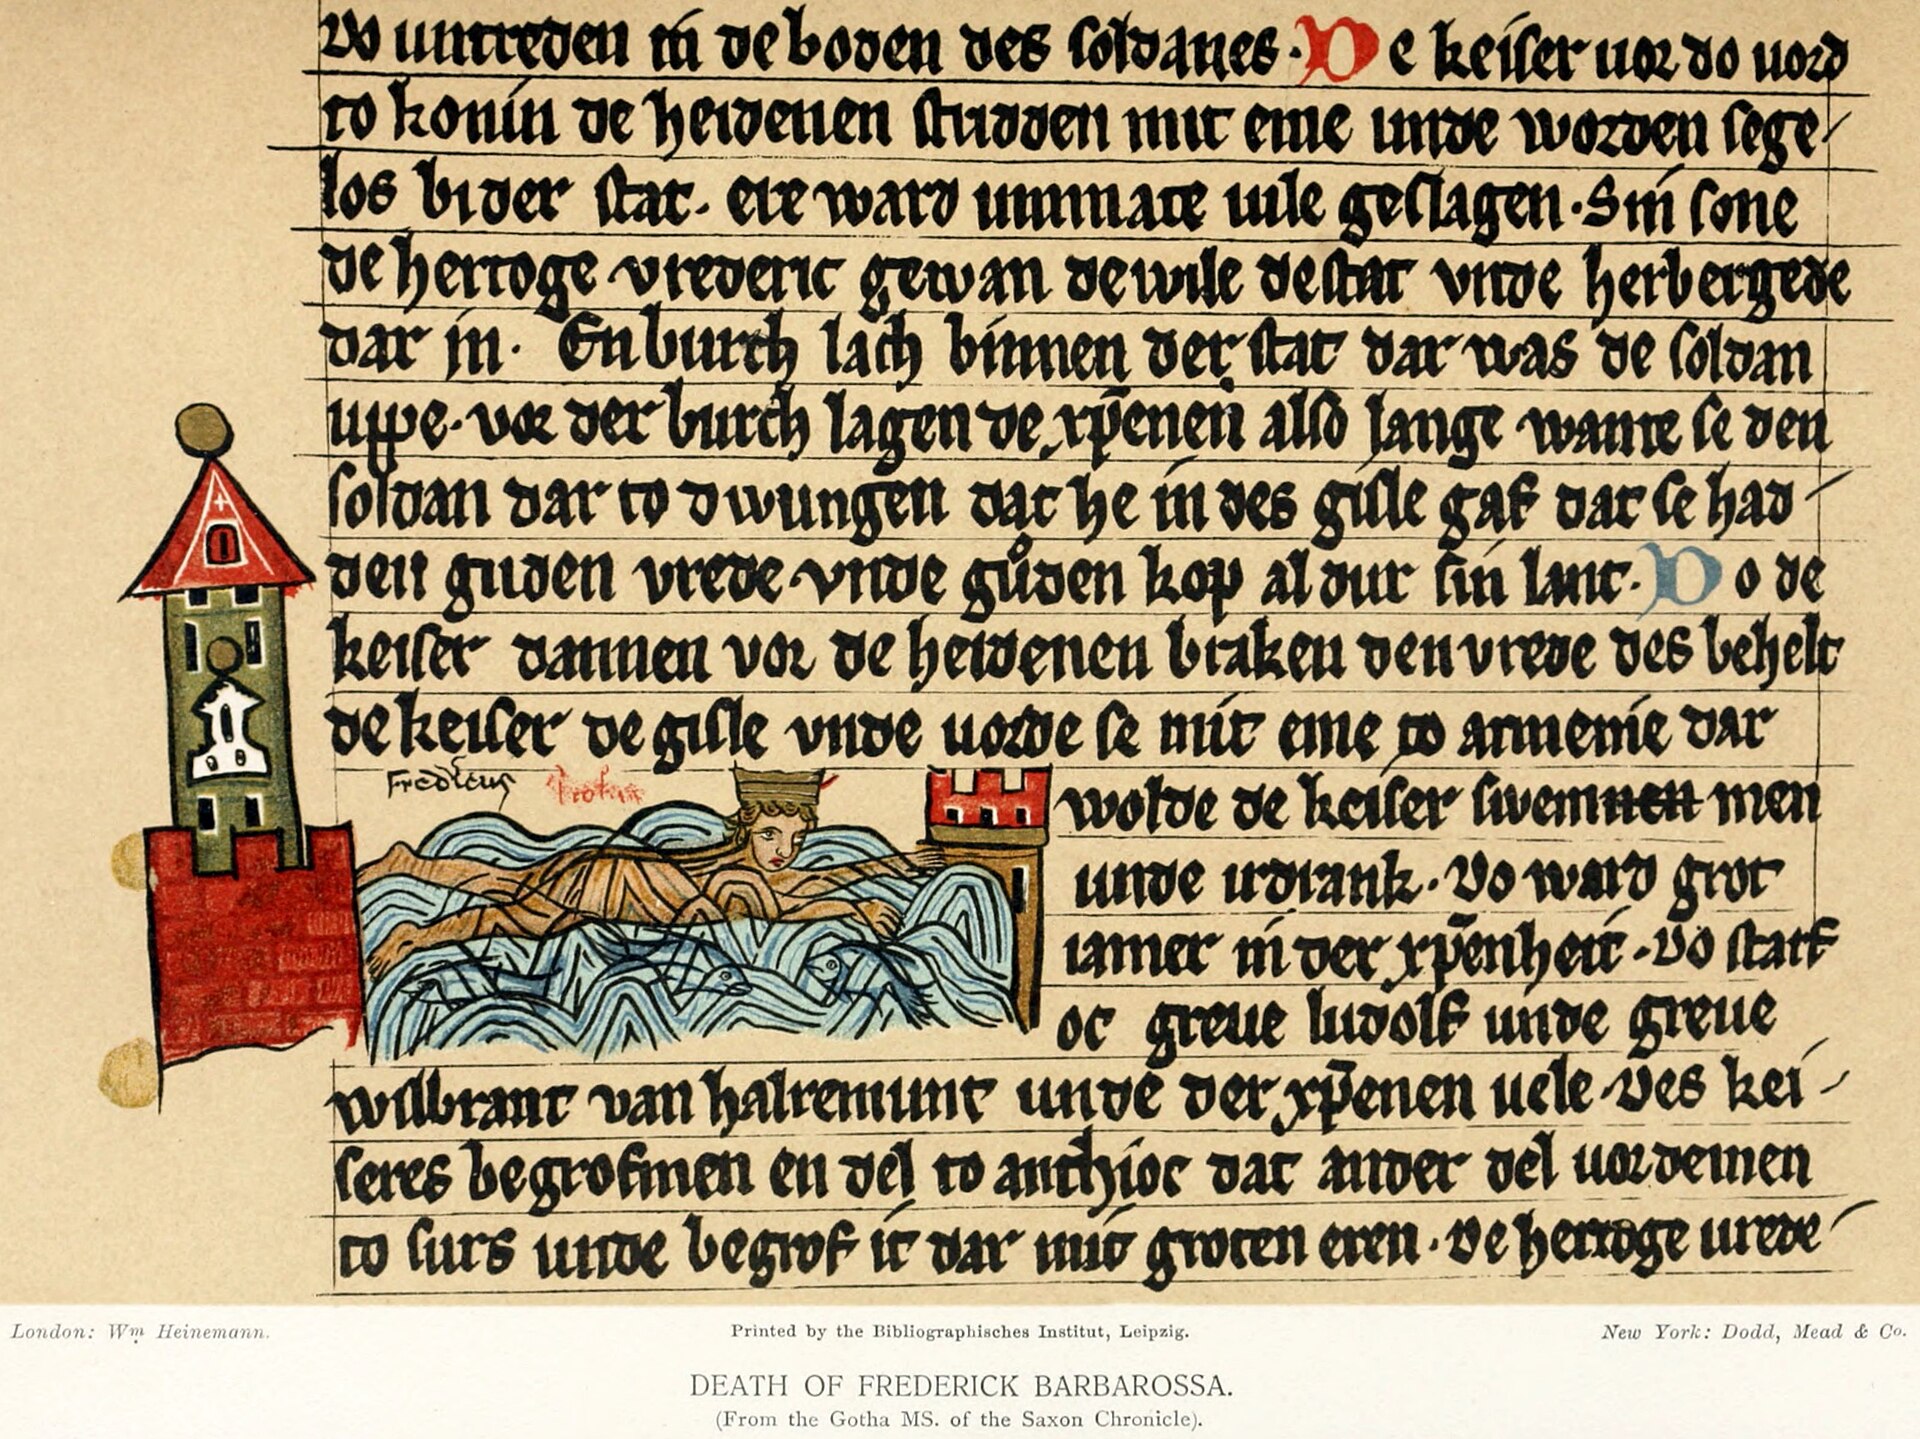 Do untreden in de boden des soldanes. De keiser uor do uord
to konin de heidenen studden mit eme unde worden sege
los bi der stat. ere ward unmate uile geslagen. Sin sone
de hertoge vrederic gewan de wile de stat vnde herbergede
dar in. En burch lach binnen der stat dar was de soldan
uppe. vor der burch lagen de xp̄enen also lange wante se den
soldan dar to dwungen dat he in des gisle gaf dat se had
den guden vrede vnde gůden kop al dur sin lant. Do de
keiser dannen vor de heidenen braken den vrede des behelt
de keiser de gisle vnde uorde se mit eme to armenie dar
Fredericus
wolde de keiser swemmen men
unde irdrank. Do ward grot
iamer in der xp̄enheit. Do starf
oc greue ludolf unde greue
wilbrant van halremunt unde der xp̄enen uele. Des kei
seres begrof men en del to anthioc dat ander del uorde men
to surs unde begrof it dar mit groten eren. De hertoge urede
London: Wm Heinemann.
Printed by the Bibliographisches Institut, Leipzig.
New York: Dodd, Mead & Co.
DEATH OF FREDERICK BARBAROSSA.
(From the Gotha MS. of the Saxon Chronicle).